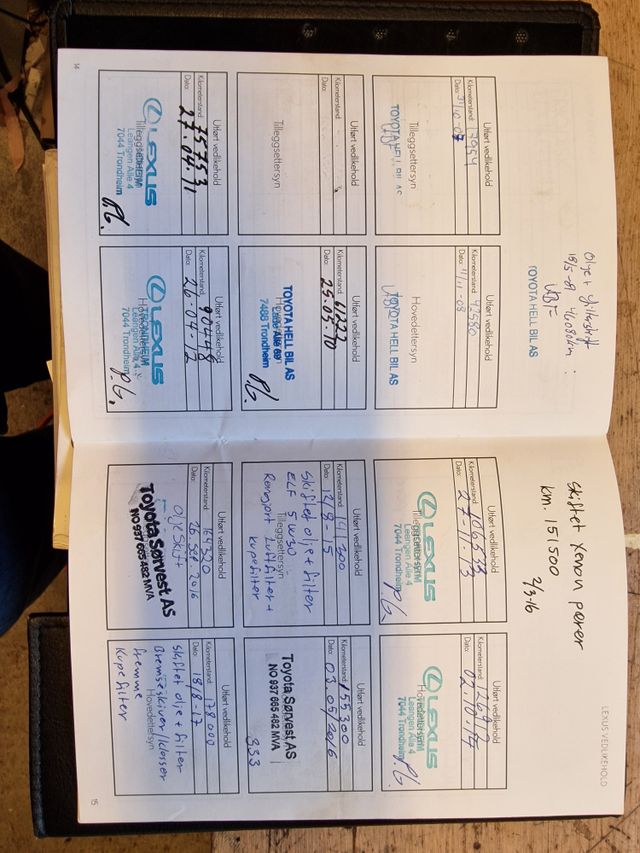 Olje + filterskift
18/5-09 46080km :
TOYOTA HELL BIL AS
Utført vedlikehold
Kilometerstand: 17954
Dato: 31/10-07
TOYOTA HELL BIL AS
Tilleggsettersyn
Utført vedlikehold
Kilometerstand: 42580
Dato: 4/11-08
TOYOTA HELL BIL AS
Hovedettersyn
Utført vedlikehold
Kilometerstand:
Dato:
Tilleggsettersyn
Utført vedlikehold
Kilometerstand: 61222
Dato: 25.05.10
TOYOTA HELL BIL AS
7488 Trondheim
Utført vedlikehold
Kilometerstand: 75753
Dato: 27.04.11
LEXUS
Tilleggsettersyn
Leangen Allé 4
7044 Trondheim
Utført vedlikehold
Kilometerstand: 90448
Dato: 26.04-12
LEXUS
Leangen Allé 4
7044 Trondheim
14
LEXUS VEDLIKEHOLD
Skiftet Xenon pærer
km. 151500
2/3-16
Utført vedlikehold
Kilometerstand: 106533
Dato: 27-11.13
LEXUS
Tilleggsettersyn
Leangen Allé 4
7044 Trondheim
Utført vedlikehold
Kilometerstand:
Dato: 02.10.14
LEXUS
Leangen Allé 4
7044 Trondheim
Utført vedlikehold
Kilometerstand: 141300
Dato: 12/8-15
Skiftet olje + filter
ELF 5W30
Tilleggsettersyn
Rengjort luftfilter +
kupefilter
Utført vedlikehold
Kilometerstand: 155300
Dato: 03.05/2016
Toyota Sørvest AS
NO 937 665 482 MVA
353
Utført vedlikehold
Kilometerstand: 161320
Dato: 26 sep 2016
Olje skift
Toyota Sørvest AS
NO 937 665 482 MVA
Utført vedlikehold
Kilometerstand: 178000
Dato: 18/8-17
Skiftet olje + filter
Bremseskiver/klosser
Hovedettersyn
fremme
Kupefilter
15